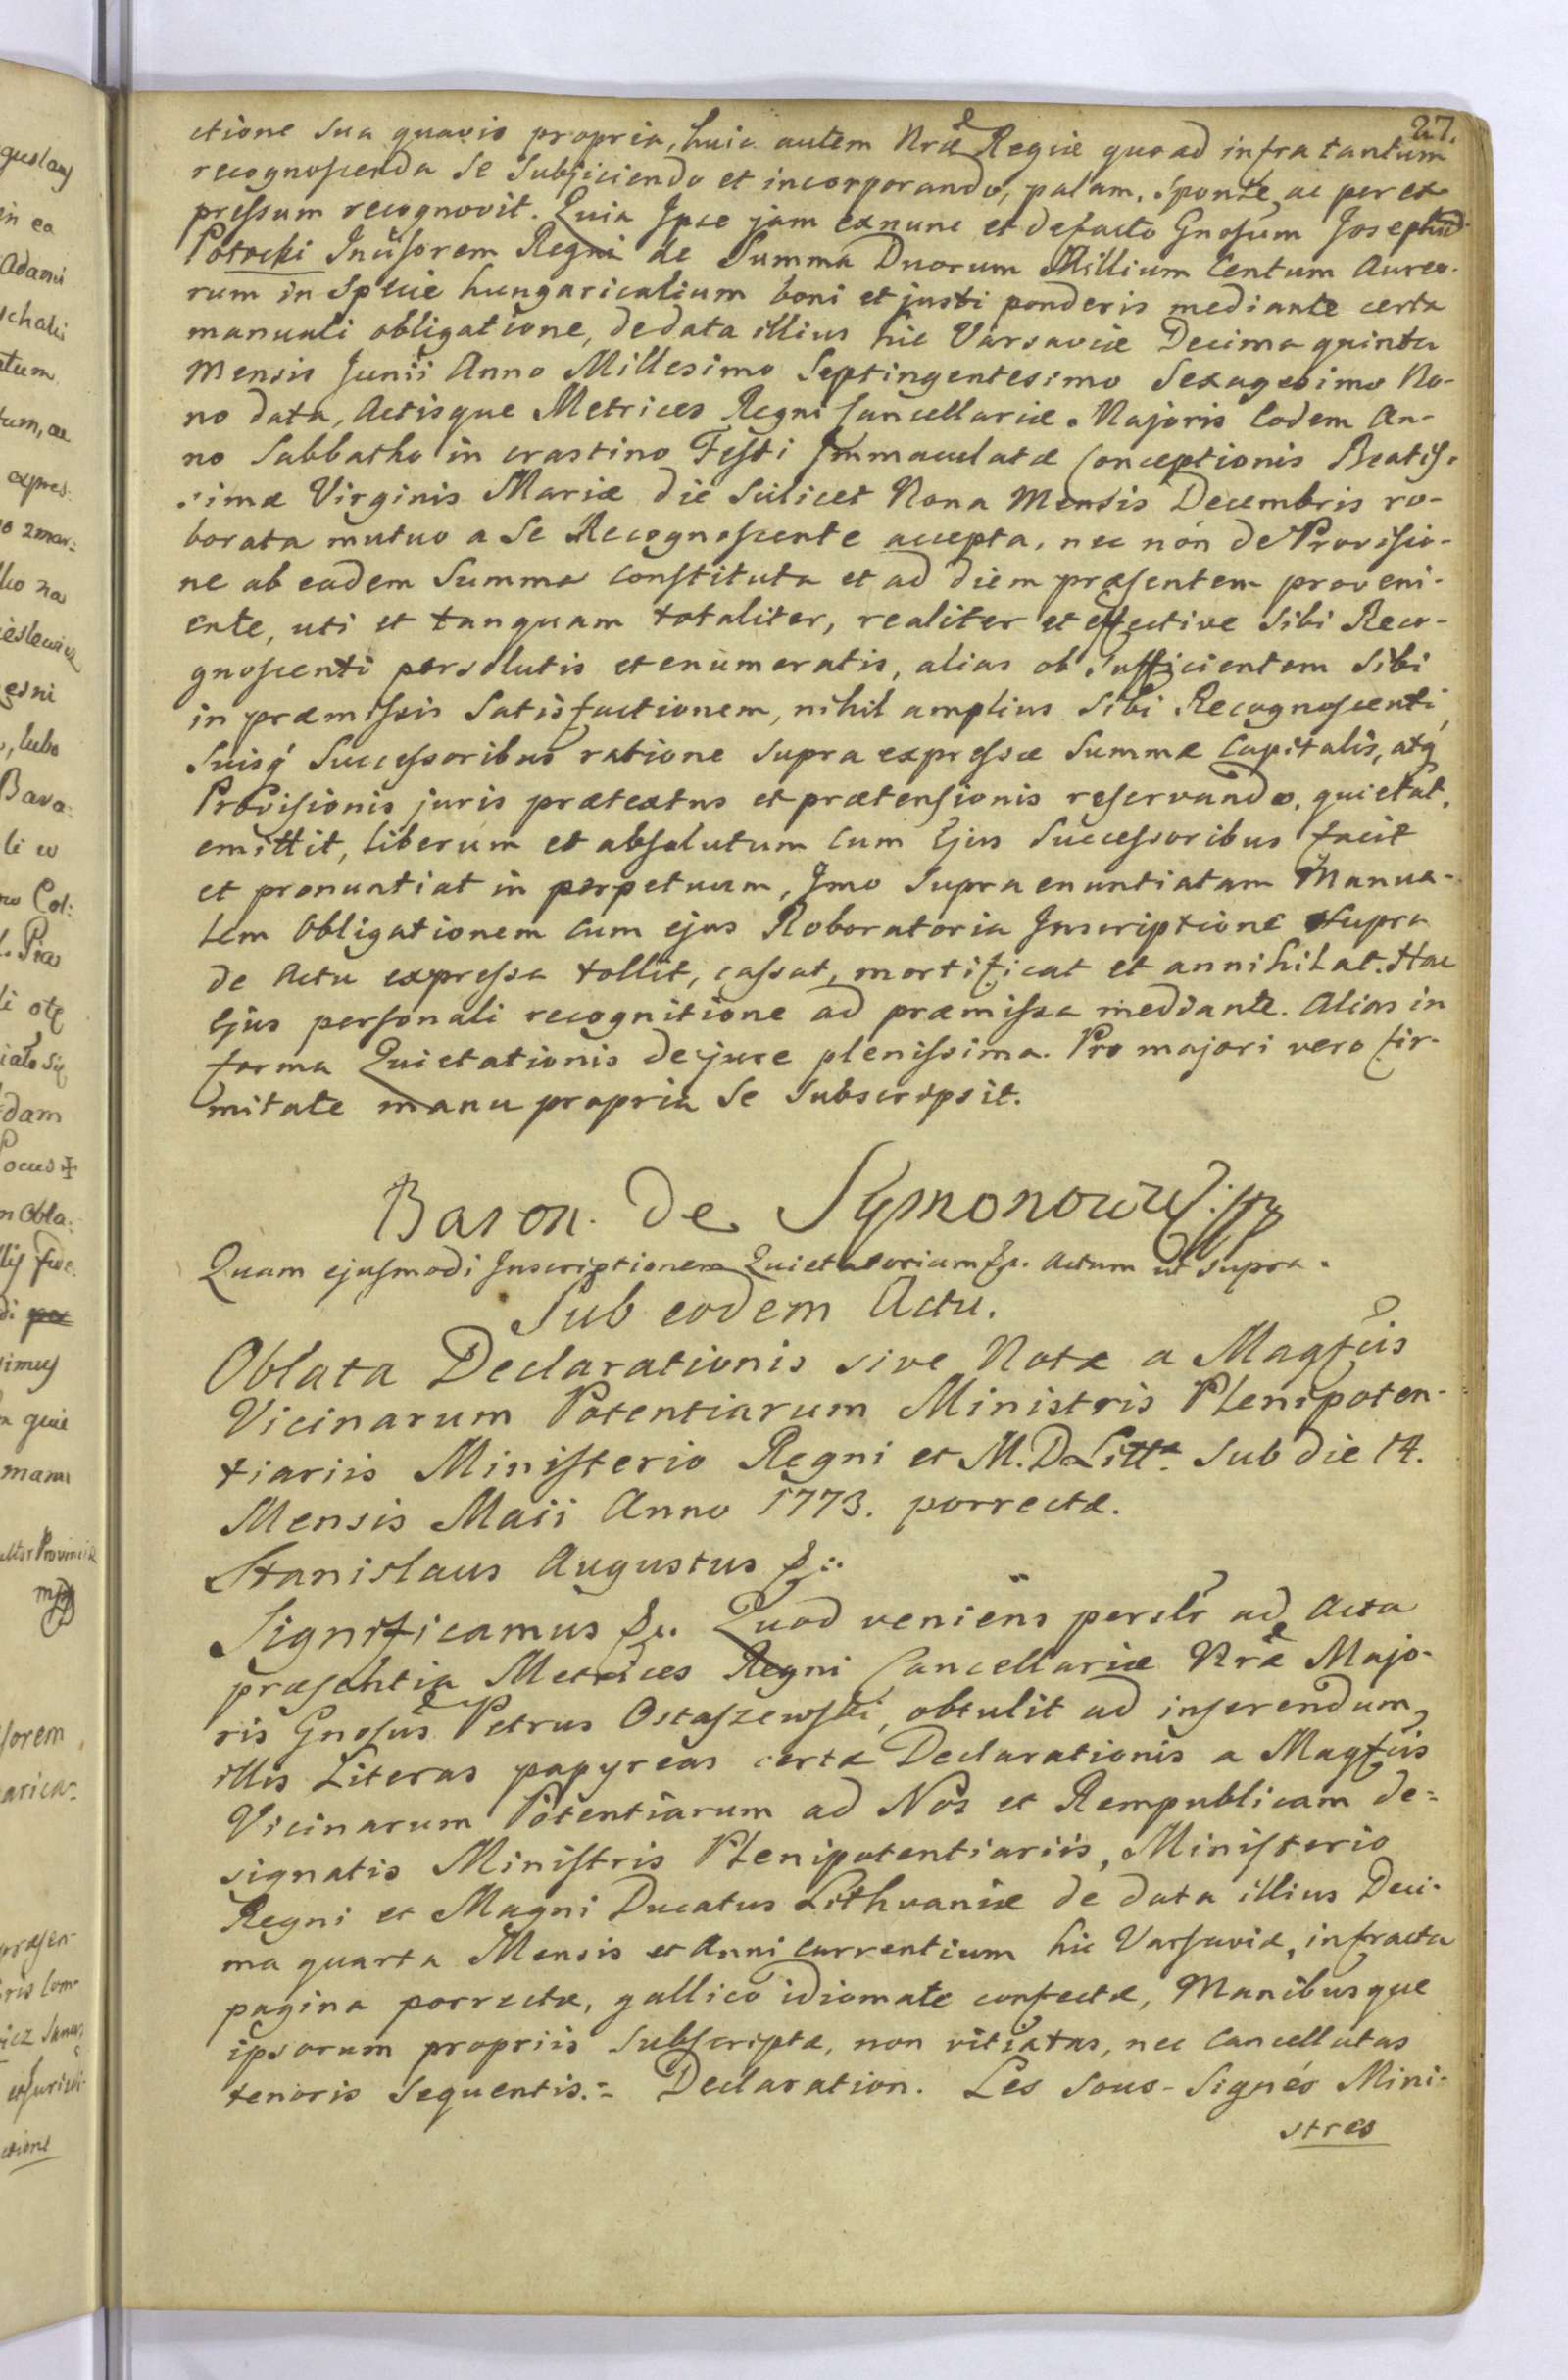 27.
ctione sua quavis propria, huic autem Nræ Regiæ quoad infra tantum
recognoscenda se subjiciendo et incorporando, palam, sponte ac per ex
pressum recognovit. Quia Ipse jam exnunc et defacto Gnosum Josephum
Potocki Incisorem Regni de Summa Duorum Millium Centum Aureo-
rum in Specie hungaricalium boni et justi ponderis mediante certa
manuali obligatione, de data illius hic Varsaviæ Decima quinta
Mensis Junii Anno Millesimo Septingentesimo Sexagesimo No-
no data, Actisque Metrices Regni Cancellariæ Majoris Eodem An-
no Sabbatho in crastino Festi Immaculatæ Conceptionis Beatis-
simæ Virginis Mariæ die scilicet Nona Mensis Decembris ro-
borata mutuo a se Recognoscente accepta, nec non de Provisio-
ne ab eadem Summa constituta et ad diem præsentem proveni-
ente, uti et tanquam totaliter, realiter et effective sibi Reco-
gnoscenti persolutis et enumeratis, alias ob sufficientem sibi
in præmissis satisfactionem, nihil amplius sibi Recognoscenti,
suisq́ Successoribus ratione supra expressæ Summæ Capitalis, atq́
Provisionis juris prætextus et prætensionis reservando, quietat,
emittit, liberum et absolutum cum Ejus Successoribus facit
et pronuntiat in perpetuum, Imo supra enuntiatam Manua-
lem Obligationem cum ejus Roboratoria Inscriptione supra
de Actu expressa tollit, cassat, mortificat et annihilat. Hac
Ejus personali recognitione ad præmissa mediante. Alias in
forma Quietationis de jure plenissima. Pro majori vero fir-
mitate manu propria se subscripsit.
Baron de
Quam ejusmodi Inscriptionem Quietatoriam &. Actum ut supra.
Sub eodem Actu.
Oblata Declarationis sive Notæ a Magfcis
Vicinarum Potentiarum Ministris Plenipoten-
tiariis Ministerio Regni et M. D. Littæ. sub die 14.
Mensis Maii Anno 1773. porrectæ.
Stanislaus Augustus &:.
Significamus &. Quod veniens perslr ad Acta
præsentia Metrices Regni Cancellariæ Nræ Majo-
ris Gnosus Petrus Ostaszewski, obtulit ad inserendum
illis Literas papyreas certæ Declarationis a Magfcis
Vicinarum Potentiarum ad Nos et Rempublicam de=
signatis Ministris Plenipotentiariis, Ministerio
Regni et Magni Ducatus Lithvaniæ de data illius Deci-
ma quarta Mensis et Anni currentium hic Varsaviæ, infracta
pagina porrectæ, gallico idiomate confectæ, Manibusque
ipsorum propriis subscriptæ, non vitiatas, nec cancellatas
tenoris sequentis.= Declaration. Les sous-signés Mini-
stres